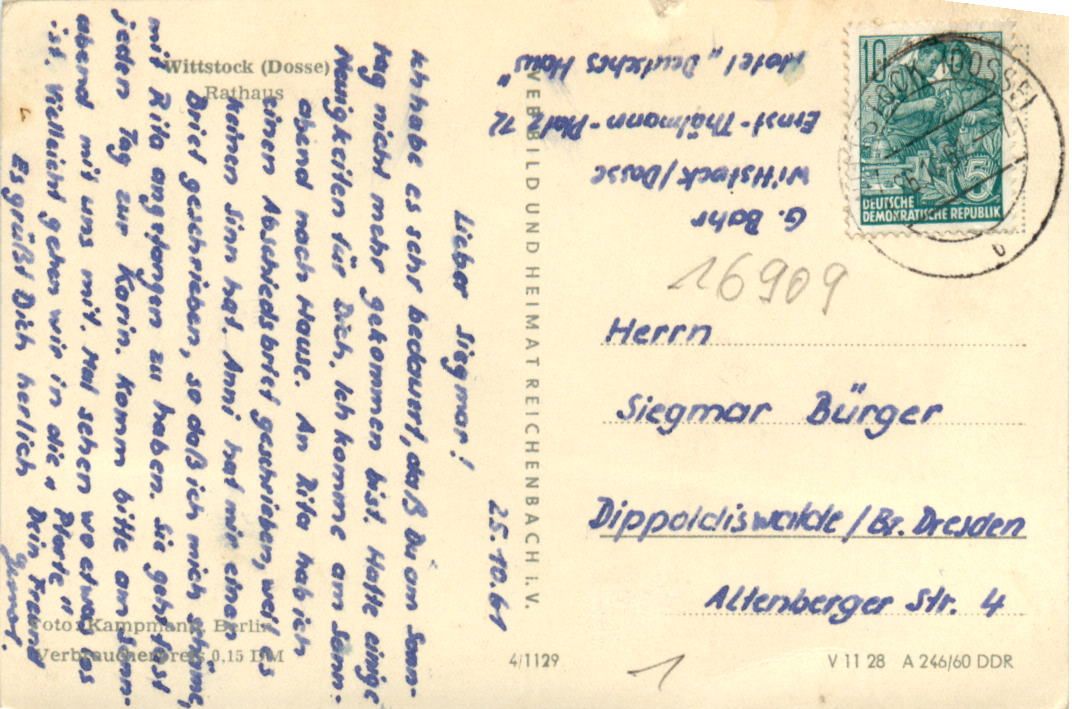 Wittstock (Dosse)
Rathaus
25.10.61
Lieber Siegmar!
Ich habe es sehr bedauert, daß Du am Sonn-
tag nicht mehr gekommen bist. Hatte einige
Neuigkeiten für Dich. Ich komme am Sonn-
abend nach Hause. An Rita hab ich
einen Abschiedsbrief geschrieben, weil es
keinen Sinn hat. Anni hat mir einen
Brief geschrieben, so daß ich mich schäme,
mit Rita angefangen zu haben. Sie geht fast
jeden Tag zur Karin. Komm bitte am Sonn-
abend mit uns mit. Mal sehen wo etwas los
ist. Vielleicht gehen wir in die „Pforte"
Es grüßt Dich herlich Dein Freund
Foto: Kampmann, Berlin
Verbraucherpreis 0,15 DM
VEB BILD UND HEIMAT REICHENBACH I. V.
G. Bahr
Wittstock/Dosse
Ernst-Thälmann-Platz 12
Hotel „Deutsches Haus"
10
5
DEUTSCHE
DEMOKRATISCHE REPUBLIK
16909
Herrn
Siegmar Bürger
Dippoldiswalde / Bz. Dresden
Altenberger Str. 4
4/1129
1
V 11 28 A 246/60 DDR